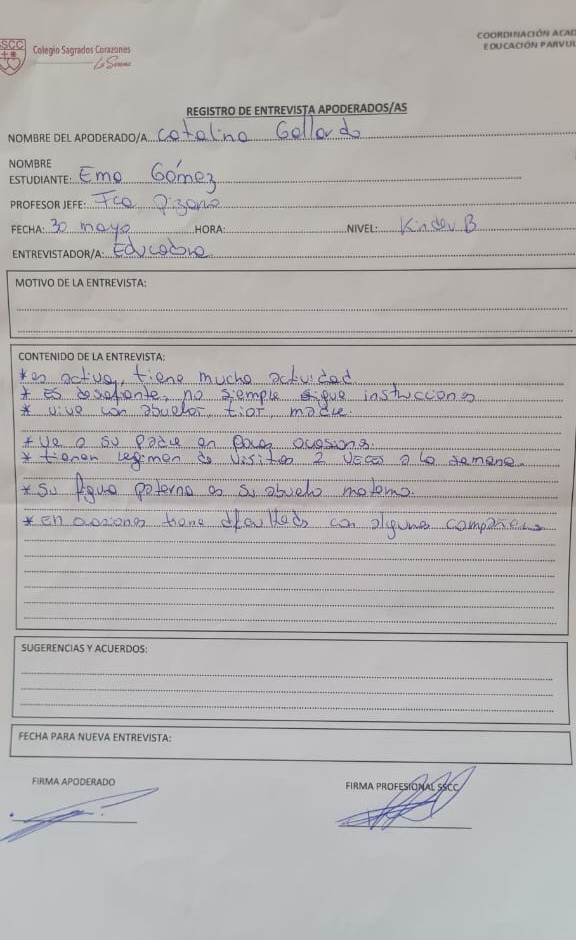 SSCC
Colegio Sagrados Corazones
La Serena
COORDINACIÓN ACAD
EDUCACIÓN PARVUL
REGISTRO DE ENTREVISTA APODERADOS/AS
NOMBRE DEL APODERADO/A Catalina Gallardo
NOMBRE
ESTUDIANTE: Ema Gómez
PROFESOR JEFE: Fca Pizarro
FECHA: 30 mayo HORA: NIVEL: Kinder B
ENTREVISTADOR/A: Educadora
MOTIVO DE LA ENTREVISTA:
CONTENIDO DE LA ENTREVISTA:
* es activa, tiene mucha actividad
* Es desafiante, no siempre sigue instrucciones
* vive con abuelos, tios, madre.
* ve a su padre en pocas ocasiones.
* tienen regimen de visitas 2 veces a la semana.
* Su figura paterna es su abuelo materno.
* en ocasiones tiene dificultades con algunos compañeros
SUGERENCIAS Y ACUERDOS:
FECHA PARA NUEVA ENTREVISTA:
FIRMA APODERADO FIRMA PROFESIONAL SSCC